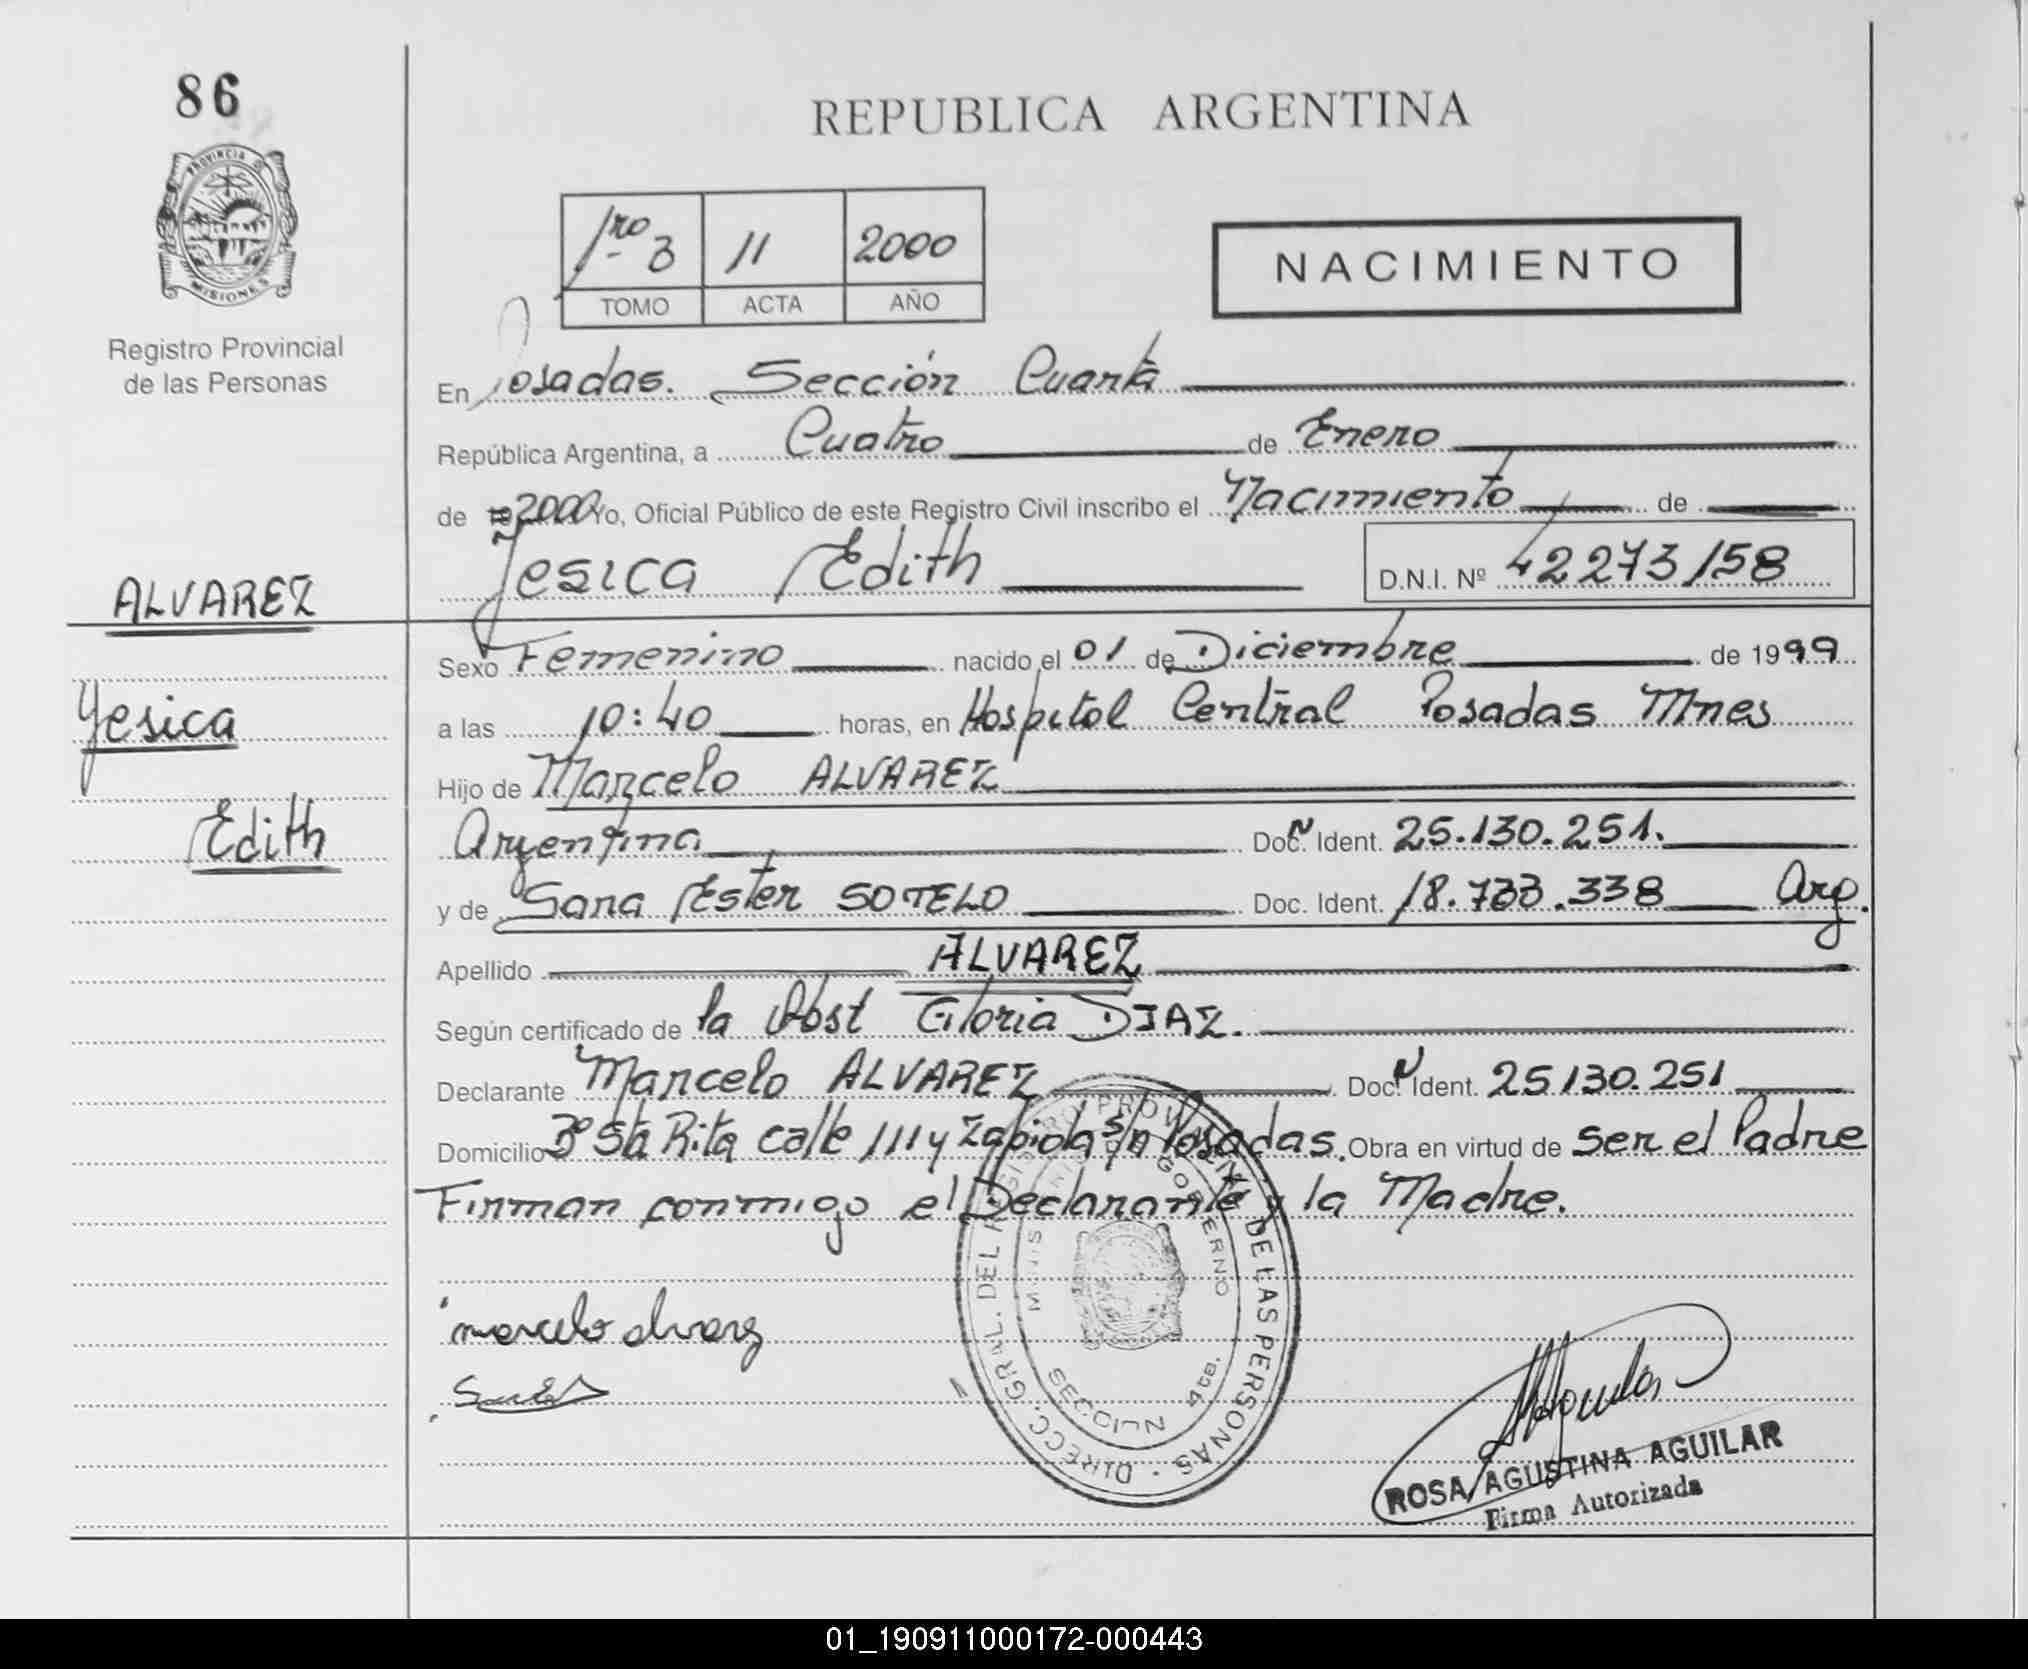 86
REPUBLICA ARGENTINA
PROVINCIA D
MISIONES
Registro Provincial
de las Personas
1ro 3 11 2000
TOMO ACTA AÑO
NACIMIENTO
En Posadas. Sección Cuarta
República Argentina, a Cuatro de Enero
de 2000 Yo, Oficial Público de este Registro Civil inscribo el Nacimiento de
Yesica Edith
D.N.I. Nº 42273158
ALVAREZ
Yesica
Edith
Sexo Femenino nacido el 01 de Diciembre de 1999
a las 10:40 horas, en Hospital Central Posadas Mnes
Hijo de Marcelo ALVAREZ
Argentina Doc. Ident. 25.130.251.
y de Sara Ester SOTELO Doc. Ident. 18.733.338 Arg.
Apellido ALVAREZ
Según certificado de la Obst Gloria DIAZ.
Declarante Marcelo ALVAREZ Doc. Ident. 25.130.251
Domicilio Bº Sta Rita calle 111 y Zapiola s/n Posadas. Obra en virtud de ser el Padre
Firman conmigo el Declarante y la Madre.
marcelo alvarez
DIRECC. GRAL. DEL REGISTRO PROVINCIAL DE LAS PERSONAS
MINISTERIO DE GOBIERNO
SECCION 4ta.
ROSA AGUSTINA AGUILAR
Firma Autorizada
01_190911000172-000443